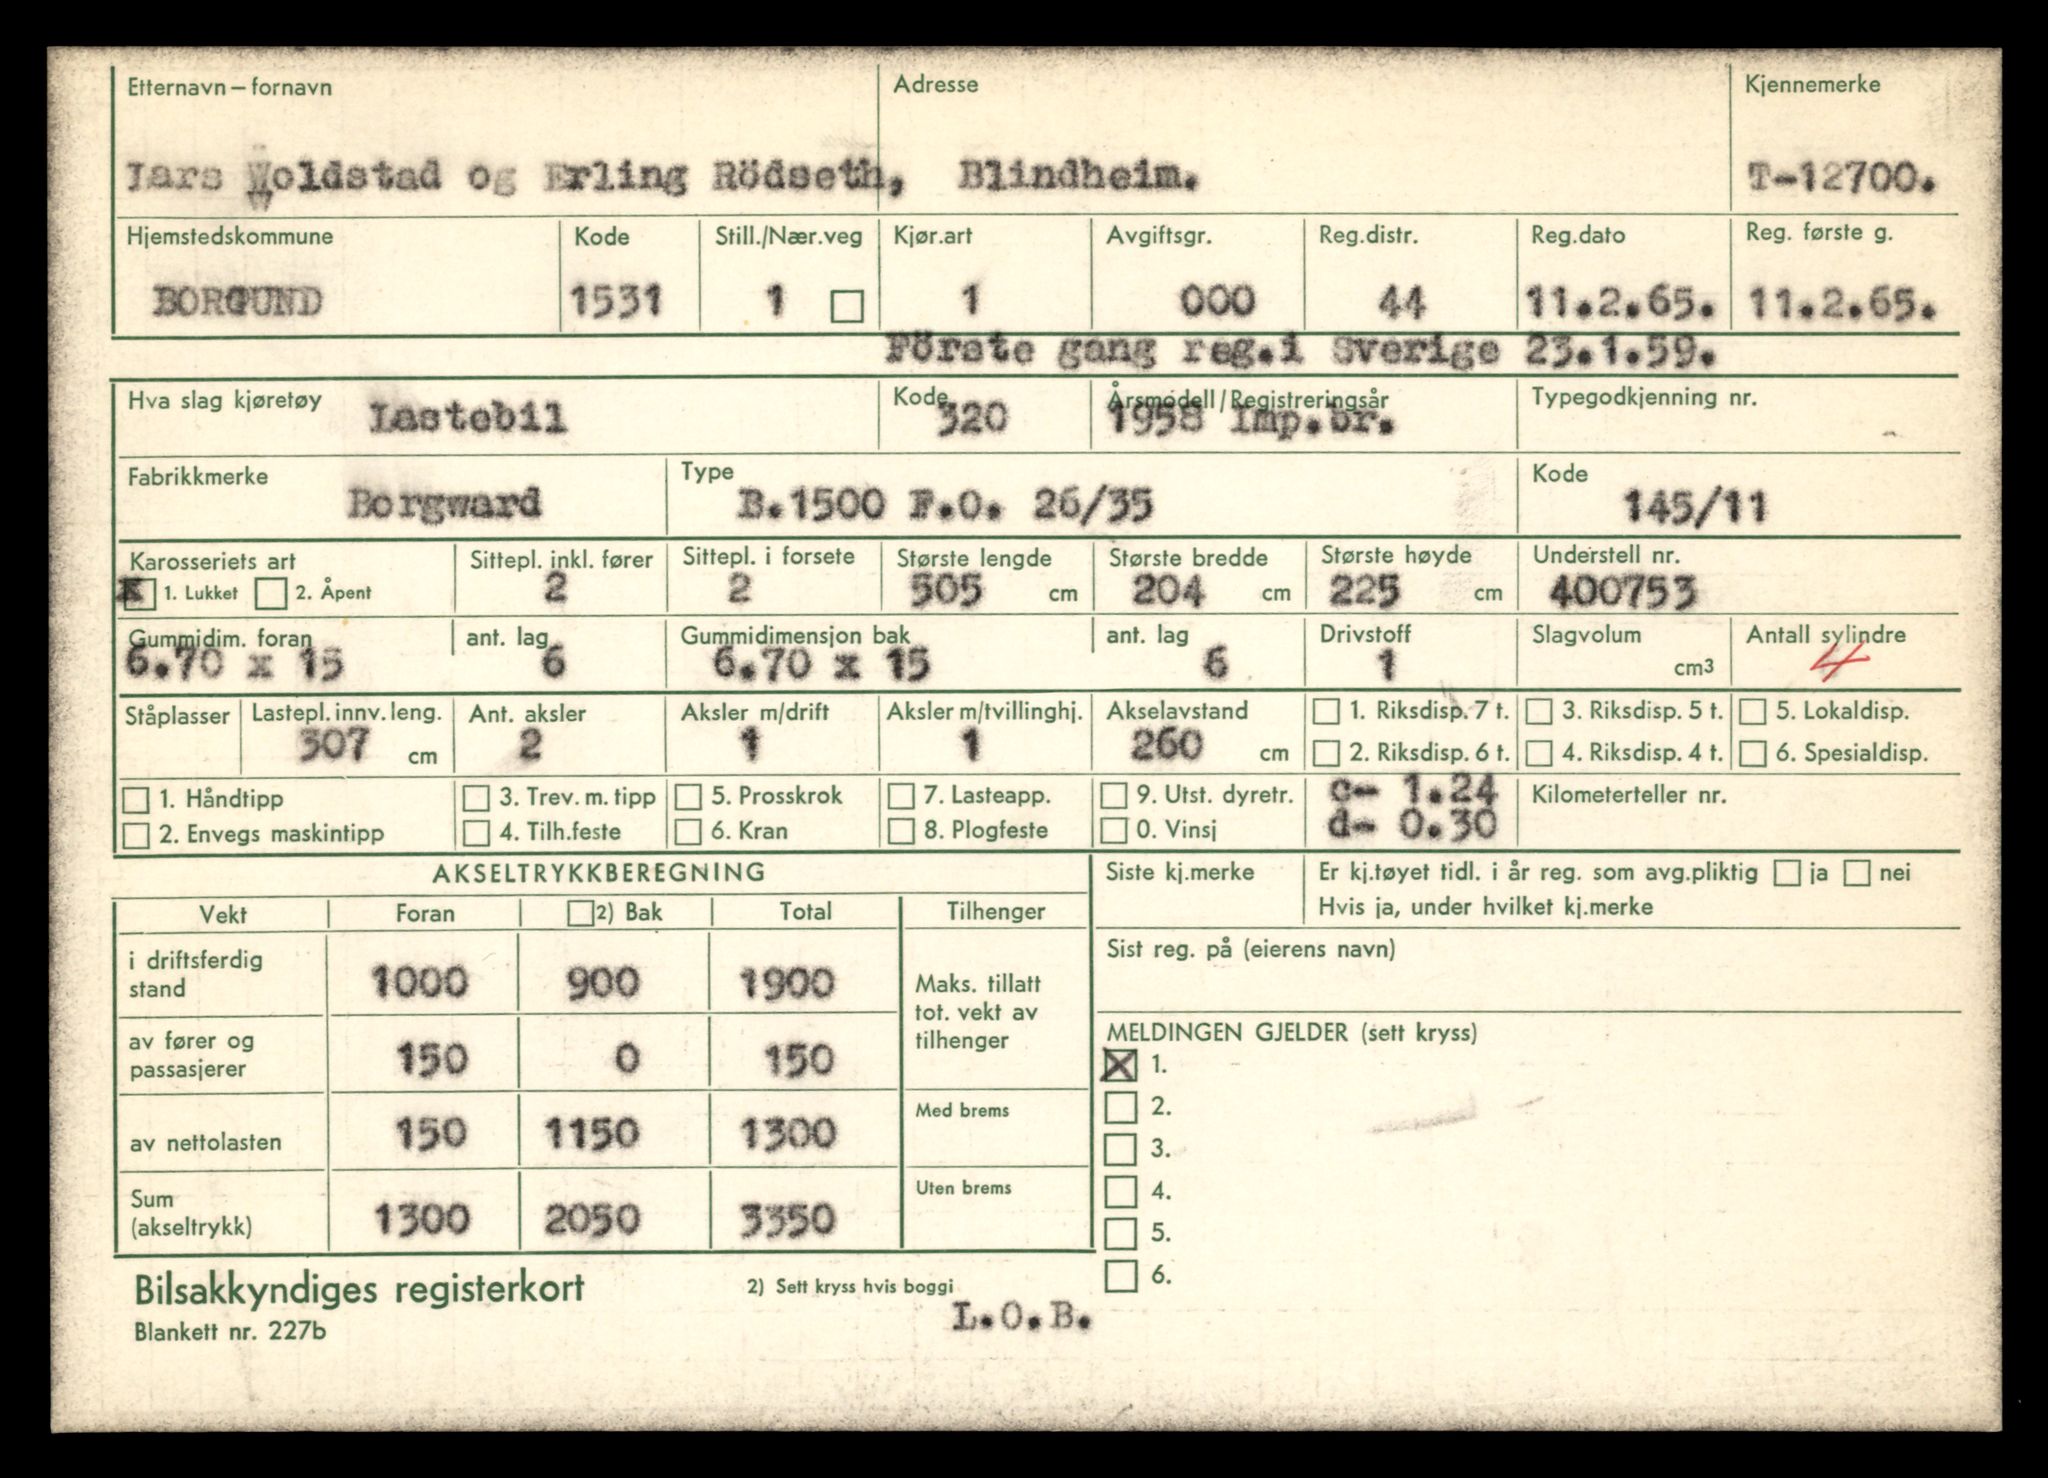 Etternavn – fornavn Adresse Kjennemerke
Lars Woldstad og Erling Rödseth, Blindheim. T-12700.
Hjemstedskommune Kode Still./Nær.veg Kjør.art Avgiftsgr. Reg.distr. Reg.dato Reg. første g.
BORGUND 1531 1 1 000 44 11.2.65. 11.2.65.
Förste gang reg.i Sverige 23.1.59.
Hva slag kjøretøy Lastebil Kode 320 Årsmodell/Registreringsår 1958 Imp.br. Typegodkjenning nr.
Fabrikkmerke Type Kode
Borgward B.1500 F.O. 26/35 145/11
Karosseriets art Sittepl. inkl. fører Sittepl. i forsete Største lengde Største bredde Største høyde Understell nr.
X 1. Lukket 2. Åpent 2 2 505 cm 204 cm 225 cm 400753
Gummidim. foran ant. lag Gummidimensjon bak ant. lag Drivstoff Slagvolum Antall sylindre
6.70 x 15 6 6.70 x 15 6 1 cm3 4
Ståplasser Lastepl. innv. leng. Ant. aksler Aksler m/drift Aksler m/tvillinghj. Akselavstand 1. Riksdisp. 7 t. 3. Riksdisp. 5 t. 5. Lokaldisp.
307 cm 2 1 1 260 cm 2. Riksdisp. 6 t. 4. Riksdisp. 4 t. 6. Spesialdisp.
1. Håndtipp 3. Trev. m. tipp 5. Prosskrok 7. Lasteapp. 9. Utst. dyretr. c- 1.24 Kilometerteller nr.
2. Envegs maskintipp 4. Tilh.feste 6. Kran 8. Plogfeste 0. Vinsj d- 0.30
AKSELTRYKKBEREGNING Siste kj.merke Er kj.tøyet tidl. i år reg. som avg.pliktig ja nei
Hvis ja, under hvilket kj.merke
Vekt Foran 2) Bak Total Tilhenger
Sist reg. på (eierens navn)
i driftsferdig stand 1000 900 1900 Maks. tillatt tot. vekt av tilhenger
MELDINGEN GJELDER (sett kryss)
av fører og passasjerer 150 0 150
X 1.
2.
av nettolasten 150 1150 1300 Med brems
3.
4.
Sum (akseltrykk) 1300 2050 3350 Uten brems
5.
6.
Bilsakkyndiges registerkort 2) Sett kryss hvis boggi
L.O.B.
Blankett nr. 227b